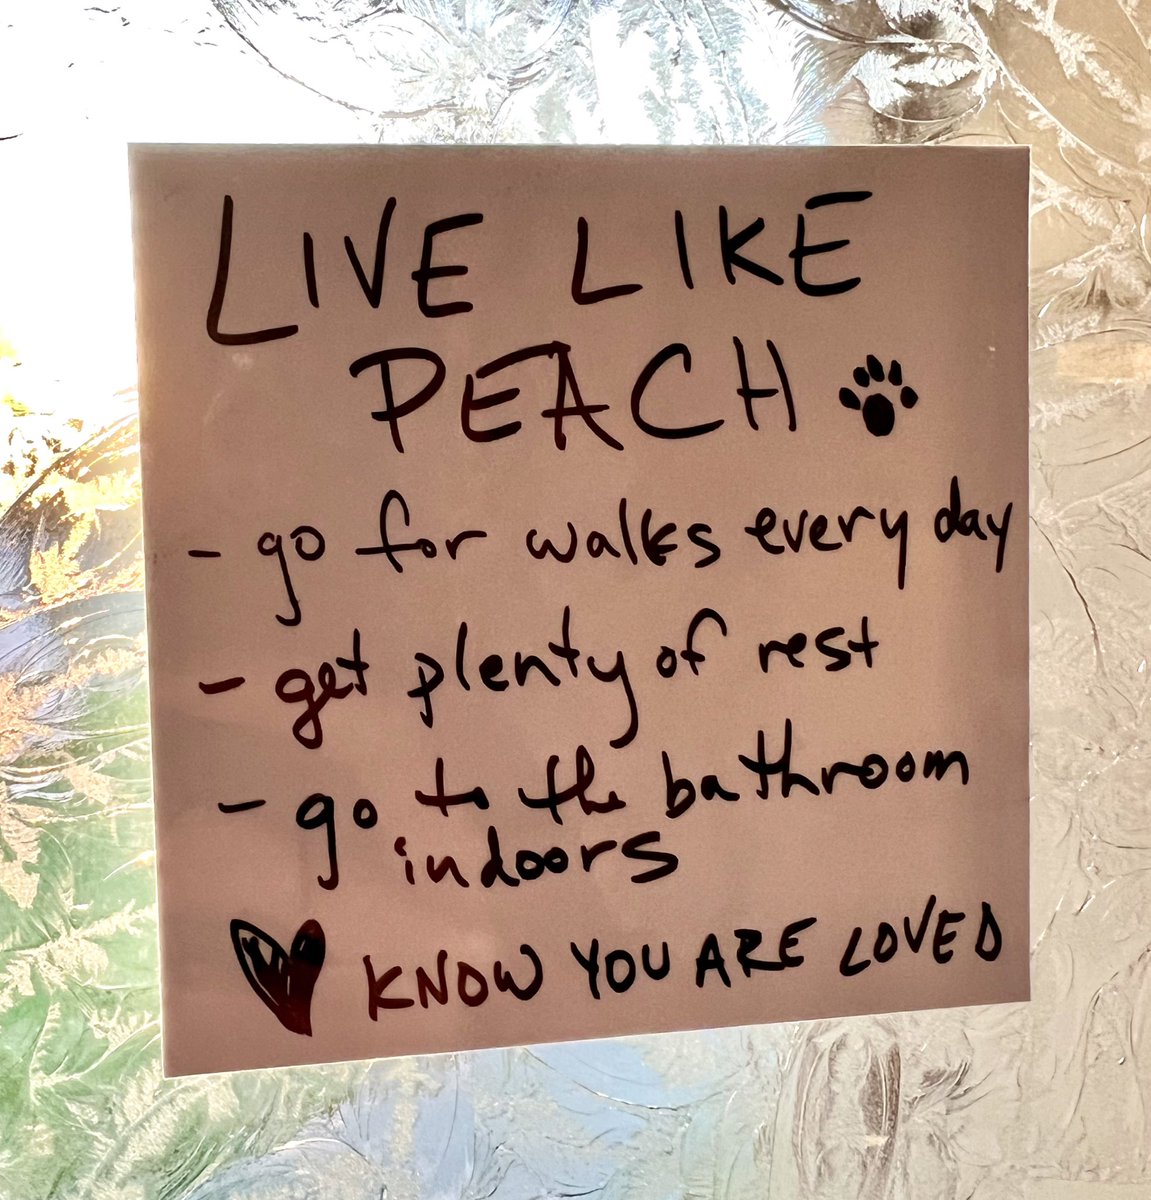 LIVE LIKE
PEACH
- go for walks every day
- get plenty of rest
- go to the bathroom
indoors
KNOW YOU ARE LOVED